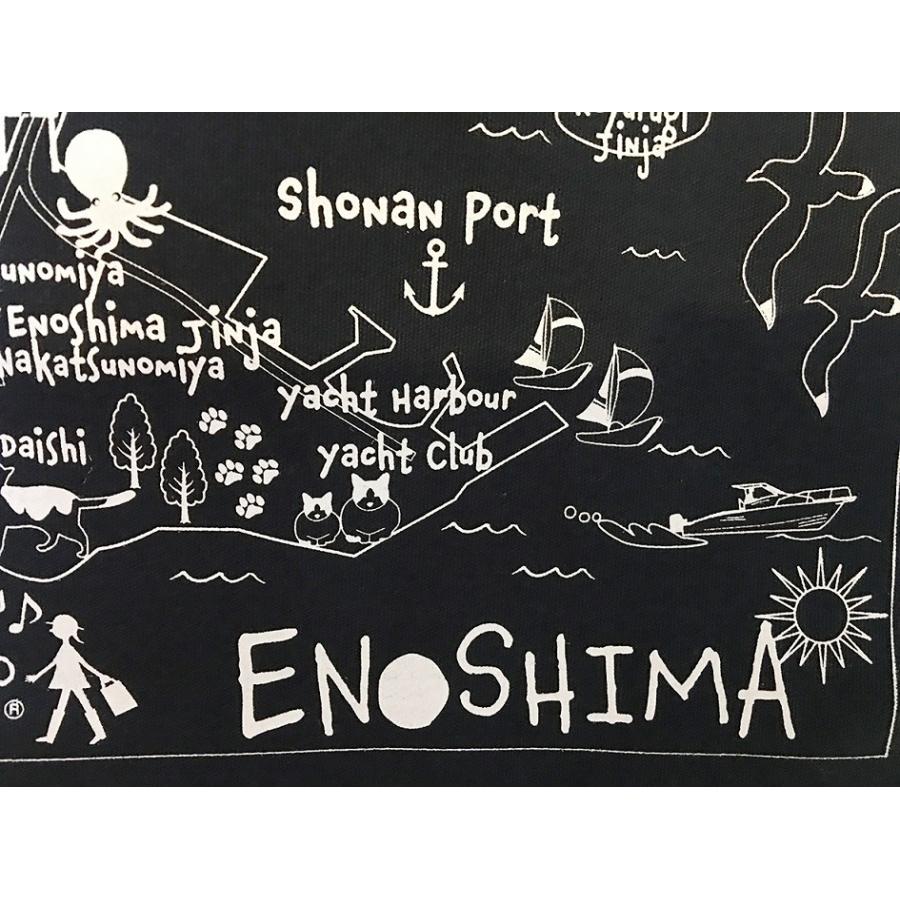 Jinja
Shonan Port
unomiya
Enoshima Jinja
Nakatsunomiya
Yacht Harbour
Daishi
Yacht Club
ENOSHIMA
®